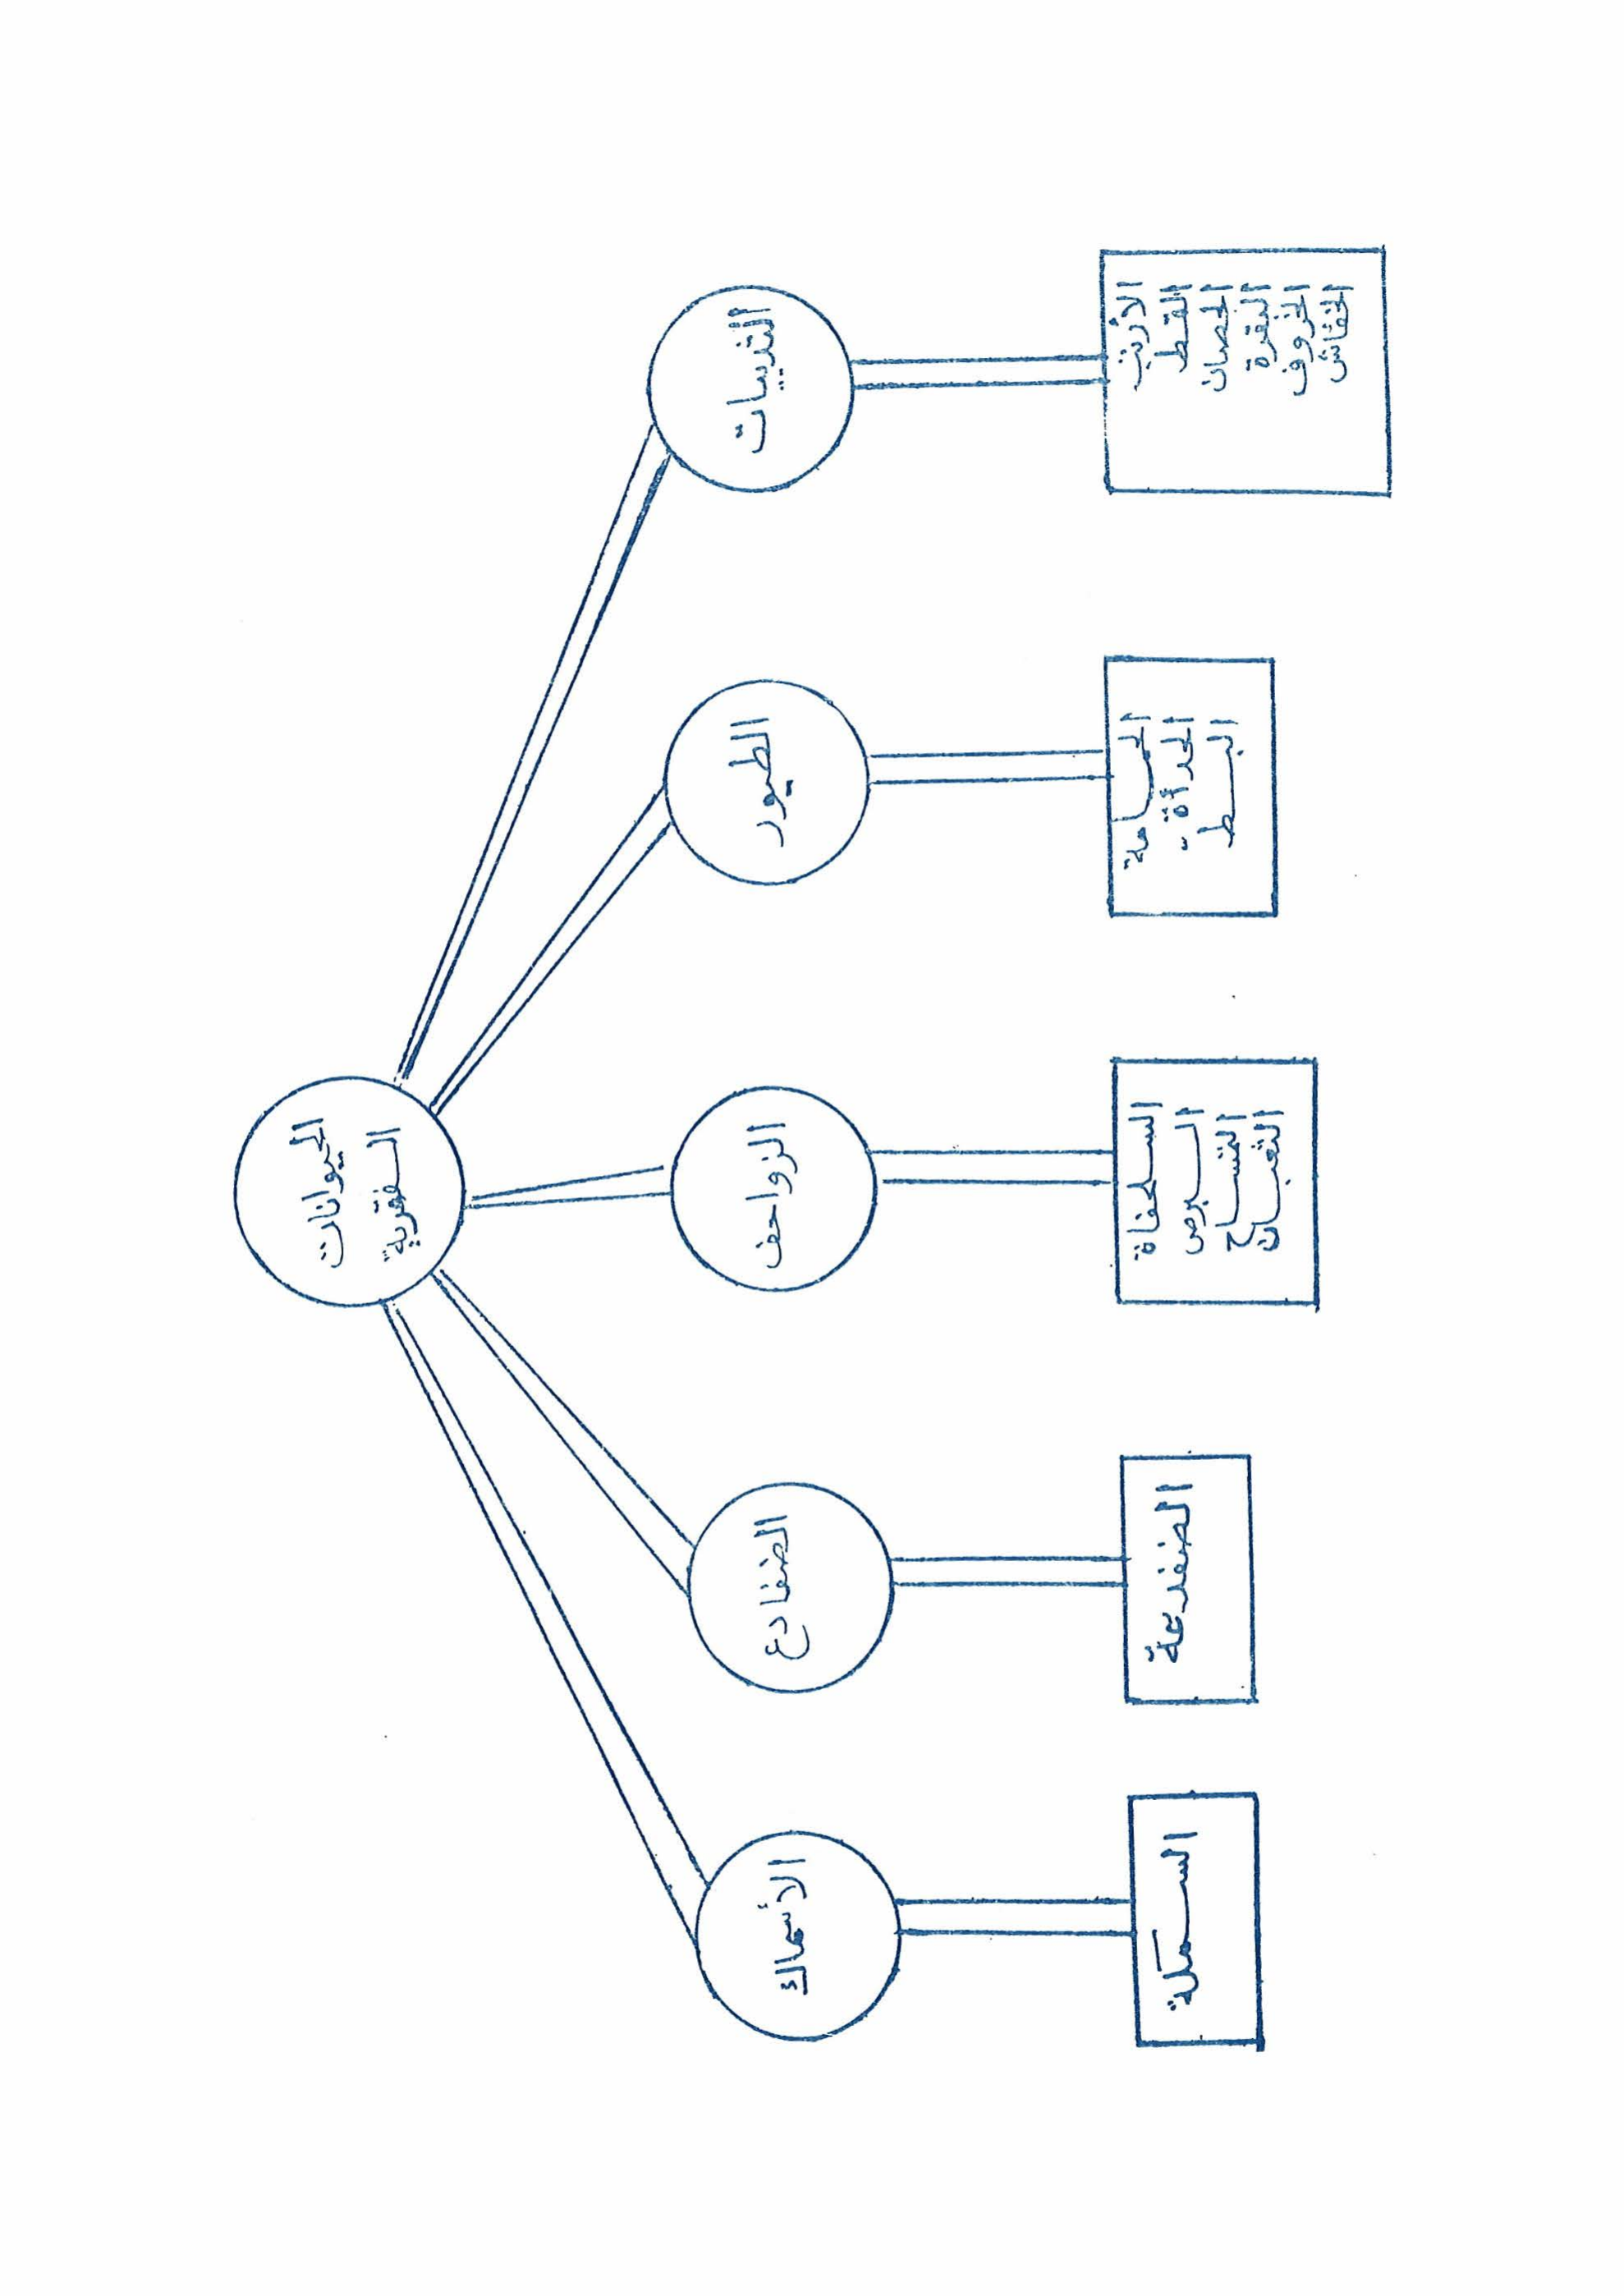 الحيوانات
الفقرية
الثدييات
الطيور
الزواحف
الضفادع
الأسماك
الأرنب
القط
الحصان
البقرة
الخروف
الخفاش
الحمامة
الحدأة
البط
السلحفاة
البرص
التمساح
الثعبان
الضفدعة
السمكة